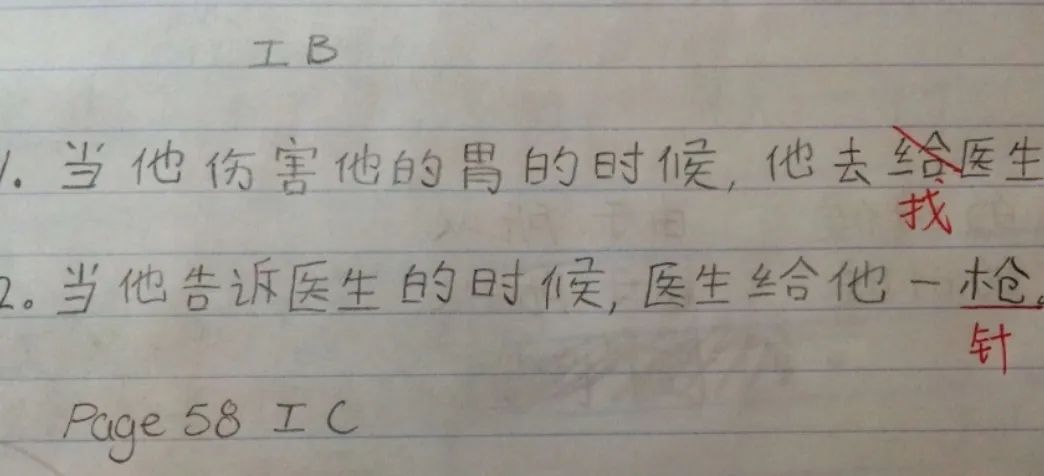 IB
1. 当他伤害他的胃的时候, 他去给医生
找
2. 当他告诉医生的时候, 医生给他一枪。
针
Page 58 IC